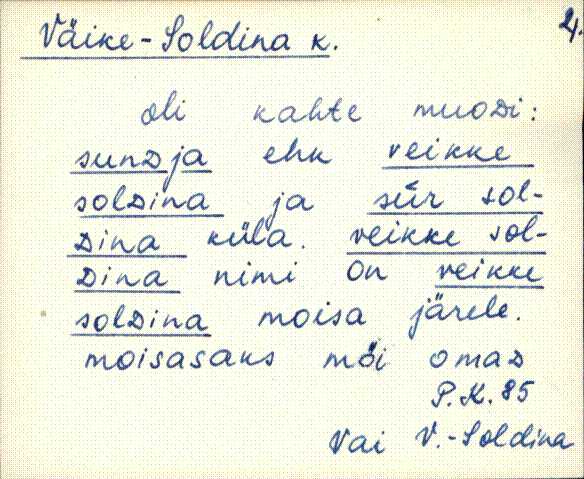 Väike-Soldina k.
4.
oli kahte muoDi:
sunDja ehk veikke
solDina ja sūr sol-
Dina küla. veikke sol-
Dina nimi on veikke
solDina moisa järele.
moisasaks möi omaD
P.K. 85
Vai V.-Soldina